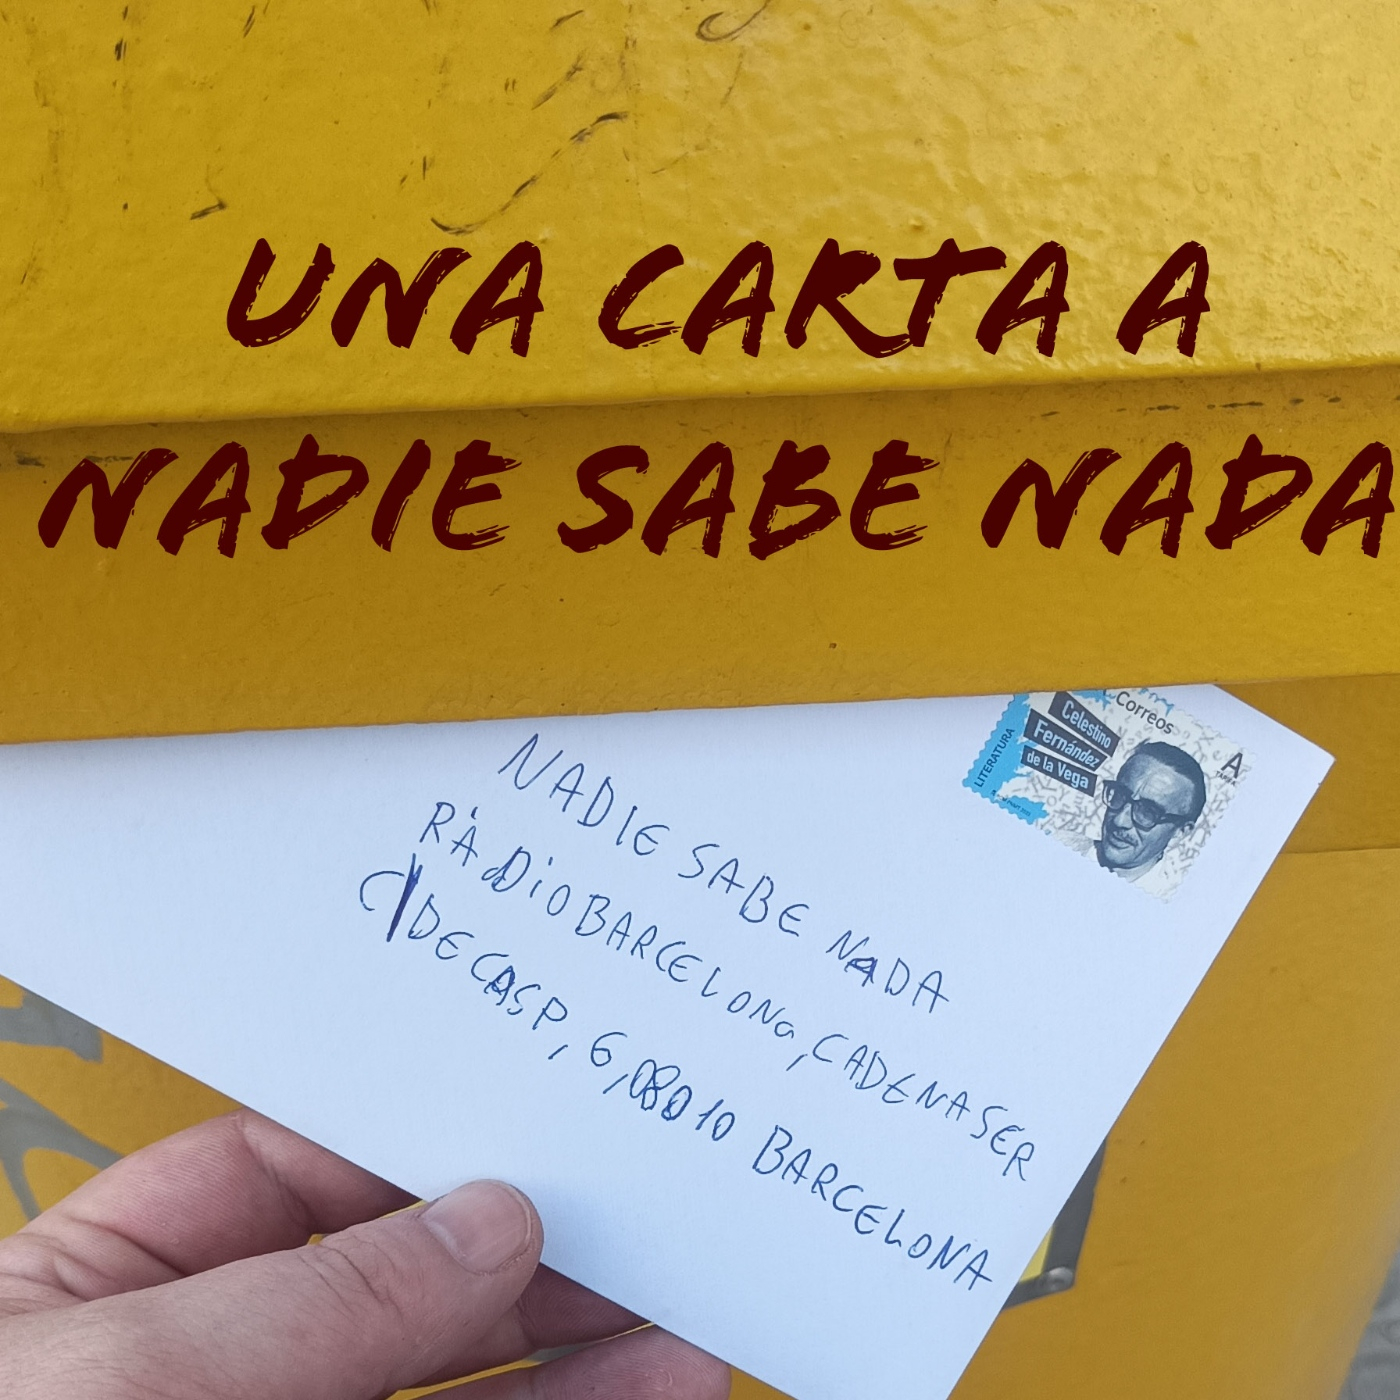 UNA CARTA A
NADIE SABE NADA
Correos
Celestino
Fernández
de la Vega
LITERATURA
A
TARIFA
NADIE SABE NADA
RÀDIO BARCELONA, CADENA SER
C/DE CASP, 6, 08010 BARCELONA